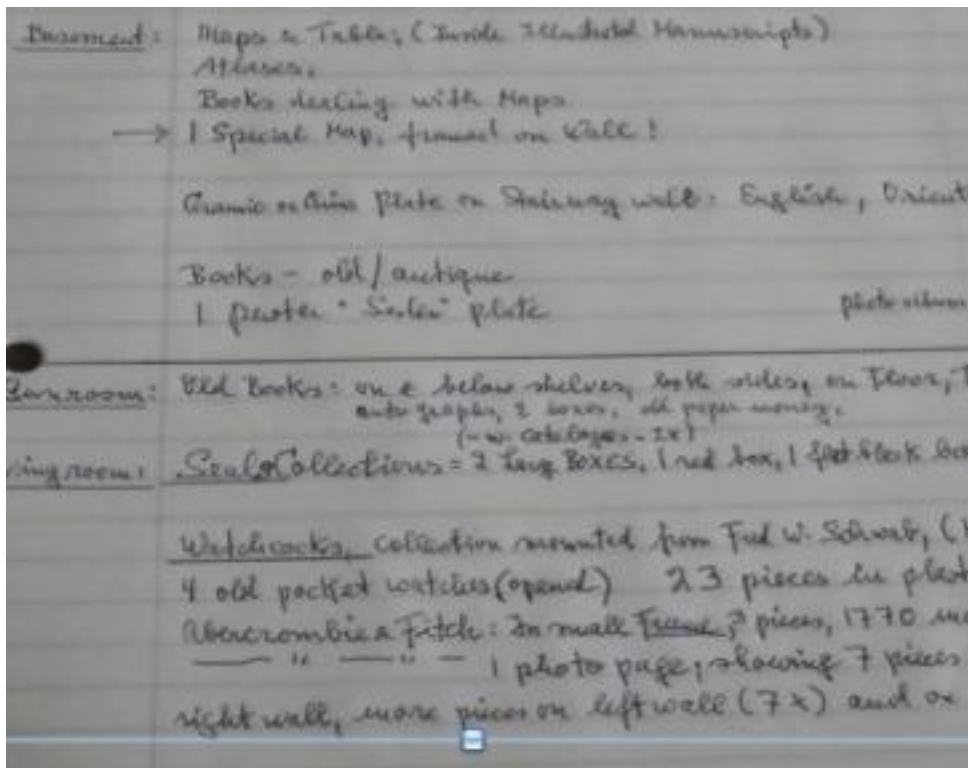 Basement: Maps & Tables, (Inside Illustrated Manuscripts)
Atlases,
Books dealing with Maps
→ 1 Special Map, framed on Wall!
Ceramic or China Plate on Stairway wall: English, Orient
Books - old/antique
1 pewter "Seder" plate
photo album
Sunroom: Old Books: on & below shelves, both sides, on Floor, T
autographs, 2 boxes, old paper money,
(-w. catalogues - 2x)
ving room: Seals Collections = 2 Larg Boxes, 1 red box, 1 flat black box
Watchcocks, collection mounted from Fred W. Schwab, (
4 old pocket watches (opened) 23 pieces in
Abercrombie & Fitch: In small Frame, pieces, 1770
— " — " — 1 photo page, showing 7 pieces
right wall, more pieces on left wall (7x) and